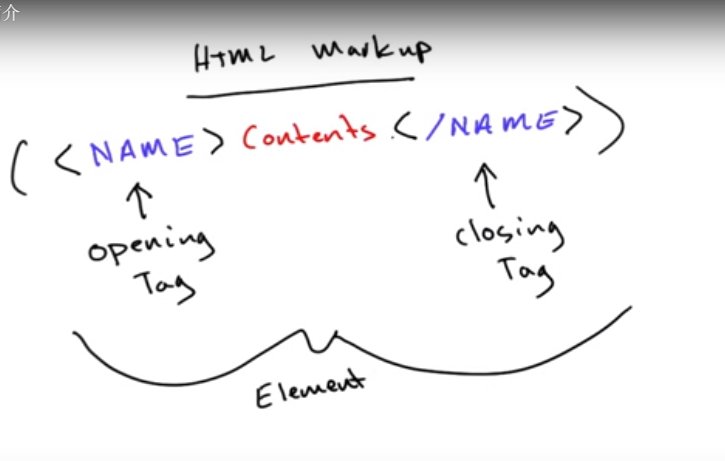 介
HTML Markup
(<NAME> Contents </NAME>)
opening
Tag
closing
Tag
Element